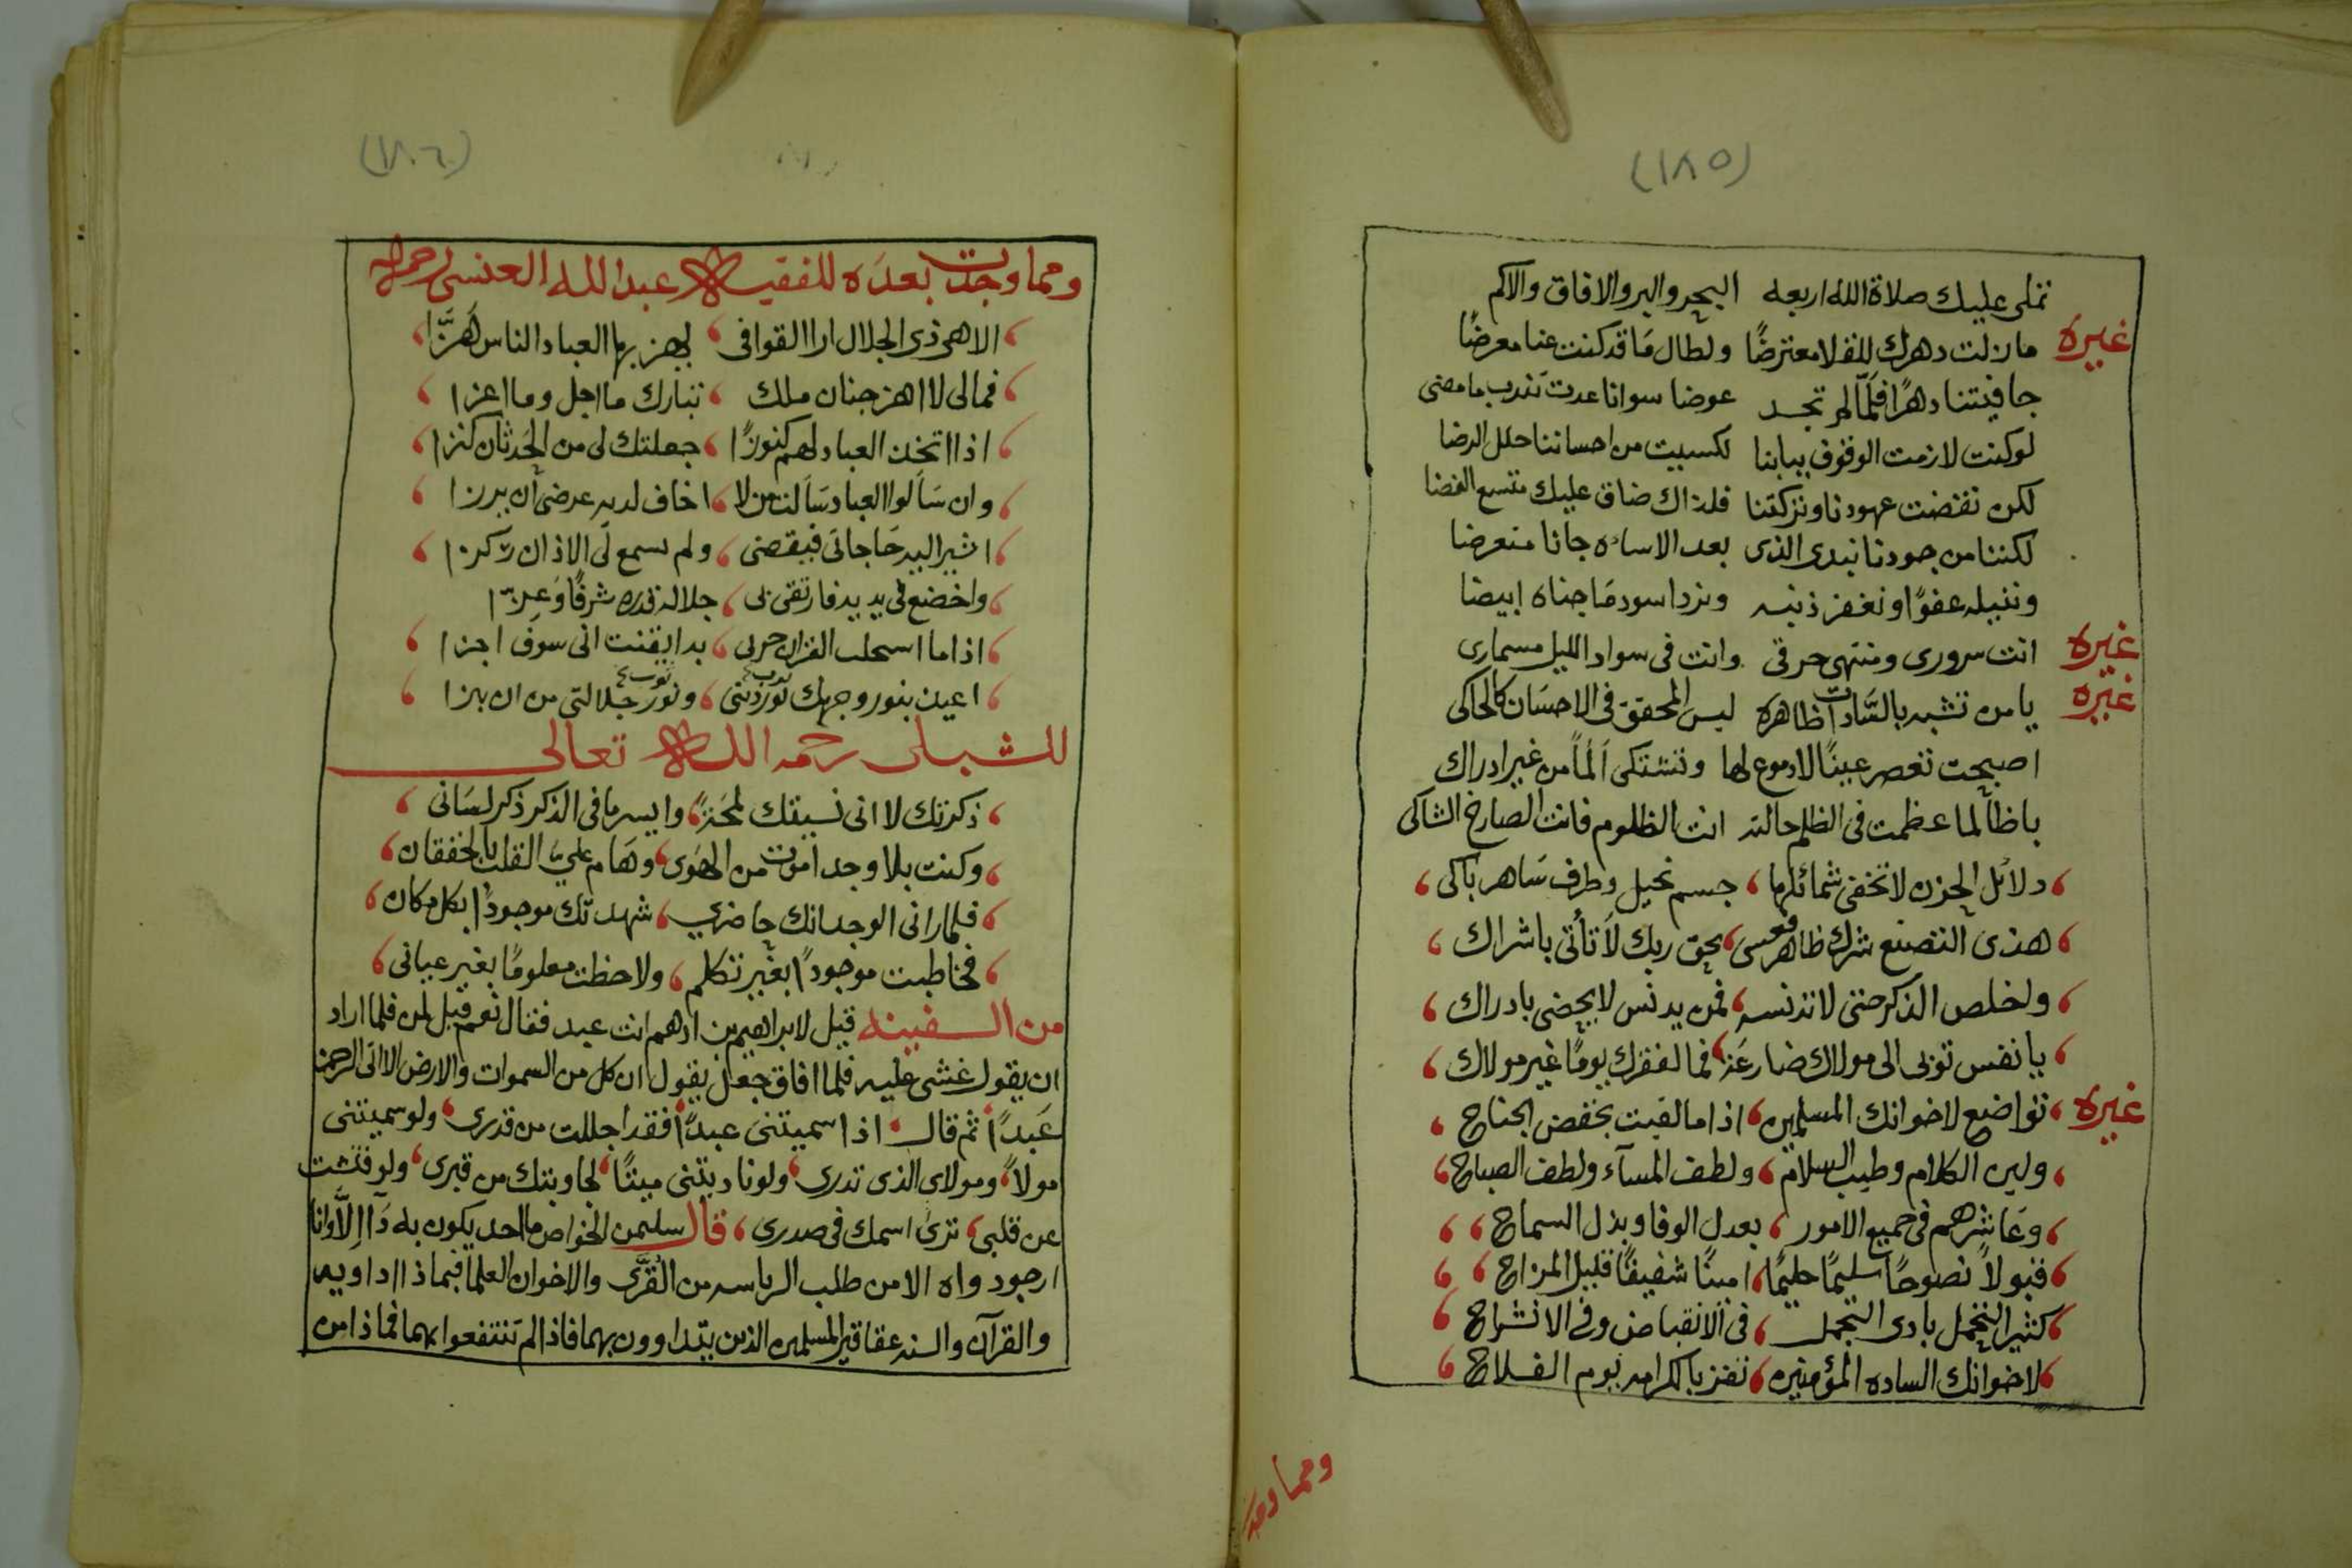 (١٨٥)
تملى عليك صلاة الله اربعه البحر والبر والافاق والاكم
غيره
ما زلت دهرك للقلا معترضًا ولطال مَا قد كنت عنا معرضًا
جافيتنا دهرًا فلمّا لم تجد عوضا سوانا عدت تندب ما مضى
لو كنت لازمت الوقوف ببابنا لكسيت من احساننا حلل الرضا
لكن نقضت عهودنا وتركتنا فلذاك ضاق عليك متسع الفضا
لكننا من جودنا نبدى الذى بعد الاساه جانا متعرضا
وننيله عفوًا ونغفر ذنبه ونرد اسود مَا جناه ابيضا
غيره
انت سرورى ومنتهى حرقى وانت فى سواد الليل مسمارى
غيره
يا من تشبه بالسَّادات ظاهره ليس المحقق فى الاحسَان كالحاكى
اصبحت تعصر عينًا لا دموع لها وتشتكى اَلمًا من غير ادراك
يا ظالما عظمت فى الظلم حالته انت الظلوم فانت الصارخ الشاكى
دلائل الحزن لا تخفى شمائلها جسم نحيل وطرف سَاهر باكى
هذى التصنع شرك ظاهر فعسى بحق ربك لا تأتى باشراك
ولخلص الذكر حتى لا تدنسه فمن يدنس لا يحضى بادراك
يا نفس توبى الى مولاك ضارعَة فما لفقرك يومًا غير مولاك
غيره
تواضع لاخوانك المسلمين اذا ما لقيت بخفض الجناح
ولين الكلام وطيب السلام ولطف المسآء ولطف الصباح
وعَاشرهم فى جميع الامور بعدل الوفا وبذل السماح
قبولاً نصوحًا سليمًا حليمًا امينًا شفيقًا قليل المزاح
كثير التحمل بادى التجمل فى الانقباض وفى الانشراح
لاخوانك الساده المؤمنين تفز بالكرامه يوم الفلاح
ومما وجد
(١٨٦)
ومما وجدت بعدَه للفقيه عبد الله العنسى رحمه الله
الاهى ذى الجلال ارا القوافى يهز بها العباد الناس هَزَّا
فمالى لا اهز جنان ملك تبارك ما اجل وما اعزا
اذا اتخذ العباد لهم كنوزًا جعلتك لى من الحَدثان كنزا
وان سَألوا العباد سَألت من لا اخاف لديه عرضى ان يرزا
اشير اليه حَاجاتى فيقضى ولم يسمع لى الاذان ركزا
واخضع فى يديه فارتقى بى جلاله قدره شرفًا وَعزّا
اذا ما استحلب الغزلان حربى بدا ايقنت انى سوف اجزا
اعيذ بنور وجهك نور دينى ونور جلالتى من ان يبزا
للشبلى رحمه الله تعالى
ذكرتك لا انى نسيتك لمحَة وايسر ما فى الذكر ذكر لسَانى
وكنت بلا وجد اموت من الهوى وهَام عليّ القلب بالخفقان
فلما رانى الوجد انك حاضري شهدتك موجودًا بكل مكان
فخاطبت موجودًا بغير تكلم ولاحظت معلومًا بغير عيانى
من السفينه قيل لابراهيم بن ادهم انت عبد فقال نعم قيل لمن فلما اراد
ان يقول غشى عليه فلما افاق جعل يقول ان كل من السموات والارض الا اتى الرحمن
عَبدًا ثم قال اذا سميتنى عبدًا فقد اجللت من قدرى ولو سميتنى
مولاً ومولاى الذى تدرى ولو ناديتنى ميتًا لجاوبتك من قبرى ولو فتشت
عن قلبى ترى اسمك فى صدرى قال سليمن الخواص ما احد يكون به دآ الاَّ وانا
ارجو دواه الا من طلب الرياسه من القرَّى والاخوان العلما فبماذا اداويه
والقرآن والسنه عقاقير المسلمين الذين يتداوون بهما فاذا لم تنتفعوا بهما فماذا من